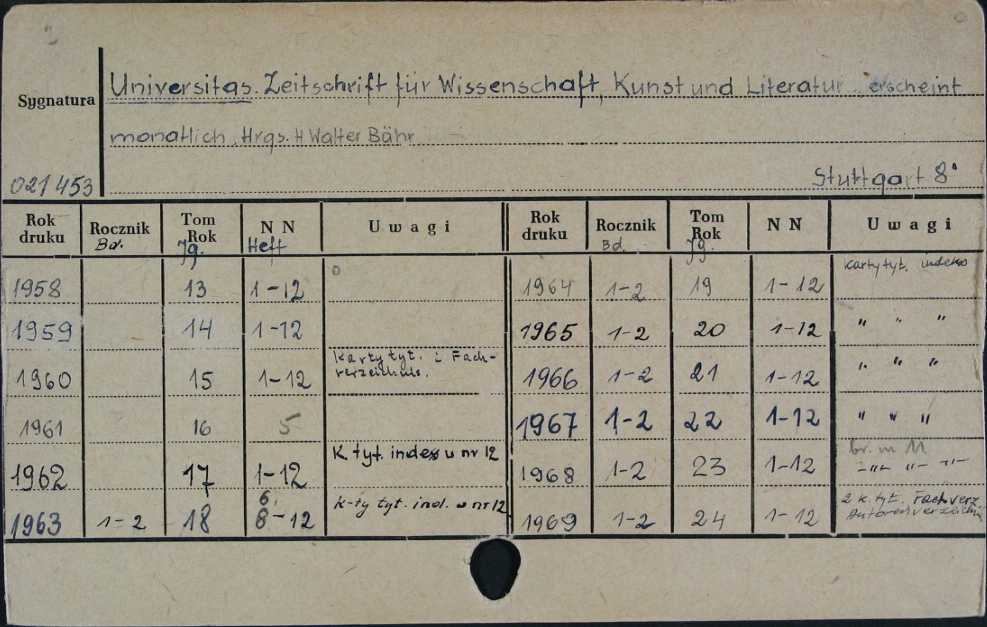 Sygnatura
Universitas. Zeitschrift für Wissenschaft, Kunst und Literatur erscheint
monatlich. Hrgs. H Walter Bähr
021453 Stuttgart 8°
Rok druku Rocznik Bd. Tom Rok Jg. NN Heft Uwagi
1958 13 1-12
1959 14 1-12
1960 15 1-12 Karty tyt. i Fach-
verzeichnis.
1961 16 5
1962 17 1-12 K. tyt. indess u nr 12
1963 1-2 18 6. 8-12 k-ty tyt. ind. w nr 12
Rok druku Rocznik Bd. Tom Rok Jg. NN Uwagi
1964 1-2 19 1-12 Karty tyt. indeks
1965 1-2 20 1-12 " " "
1966 1-2 21 1-12 " " "
1967 1-2 22 1-12 " " "
1968 1-2 23 1-12 br. nr 11
-"- "- -"-
1969 1-2 24 1-12 2 k. tyt. Fachverz.